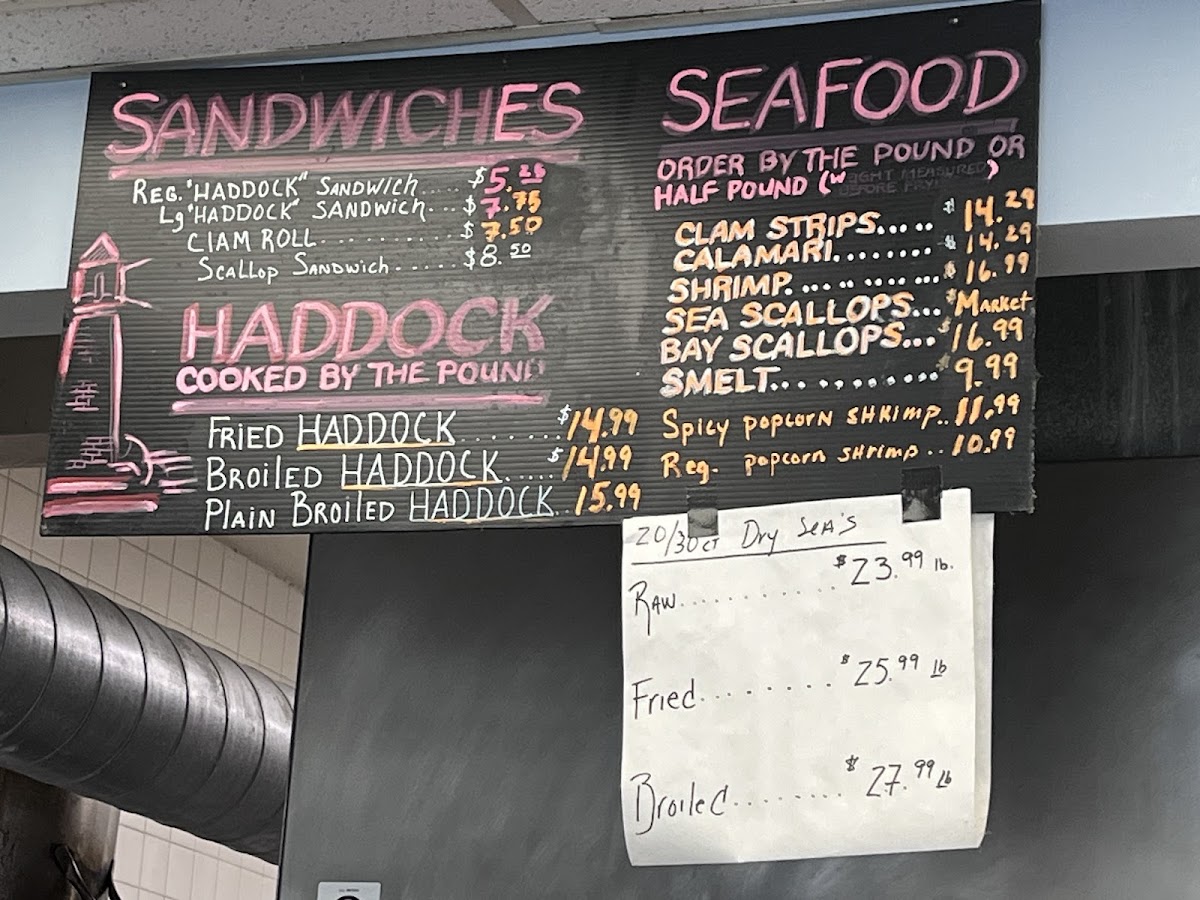 SANDWICHES
REG. "HADDOCK" SANDWICH..... $5.25
Lg "HADDOCK" SANDWICH... $7.75
CLAM ROLL........... $7.50
SCALLOP SANDWICH...... $8.50
HADDOCK
COOKED BY THE POUND
FRIED HADDOCK....... $14.99
BROILED HADDOCK..... $14.99
PLAIN BROILED HADDOCK.. 15.99
SEAFOOD
ORDER BY THE POUND OR
HALF POUND (WEIGHT MEASURED
BEFORE FRYING)
CLAM STRIPS..... $14.29
CALAMARI........ $14.29
SHRIMP........... $16.99
SEA SCALLOPS... $MARKET
BAY SCALLOPS... $16.99
SMELT.......... $9.99
Spicy popcorn SHRIMP.. 11.99
Reg. popcorn SHRIMP.. 10.99
20/30 CT Dry SEA'S
RAW........... $23.99 lb.
Fried......... $25.99 lb
Broiled........ $27.99 lb